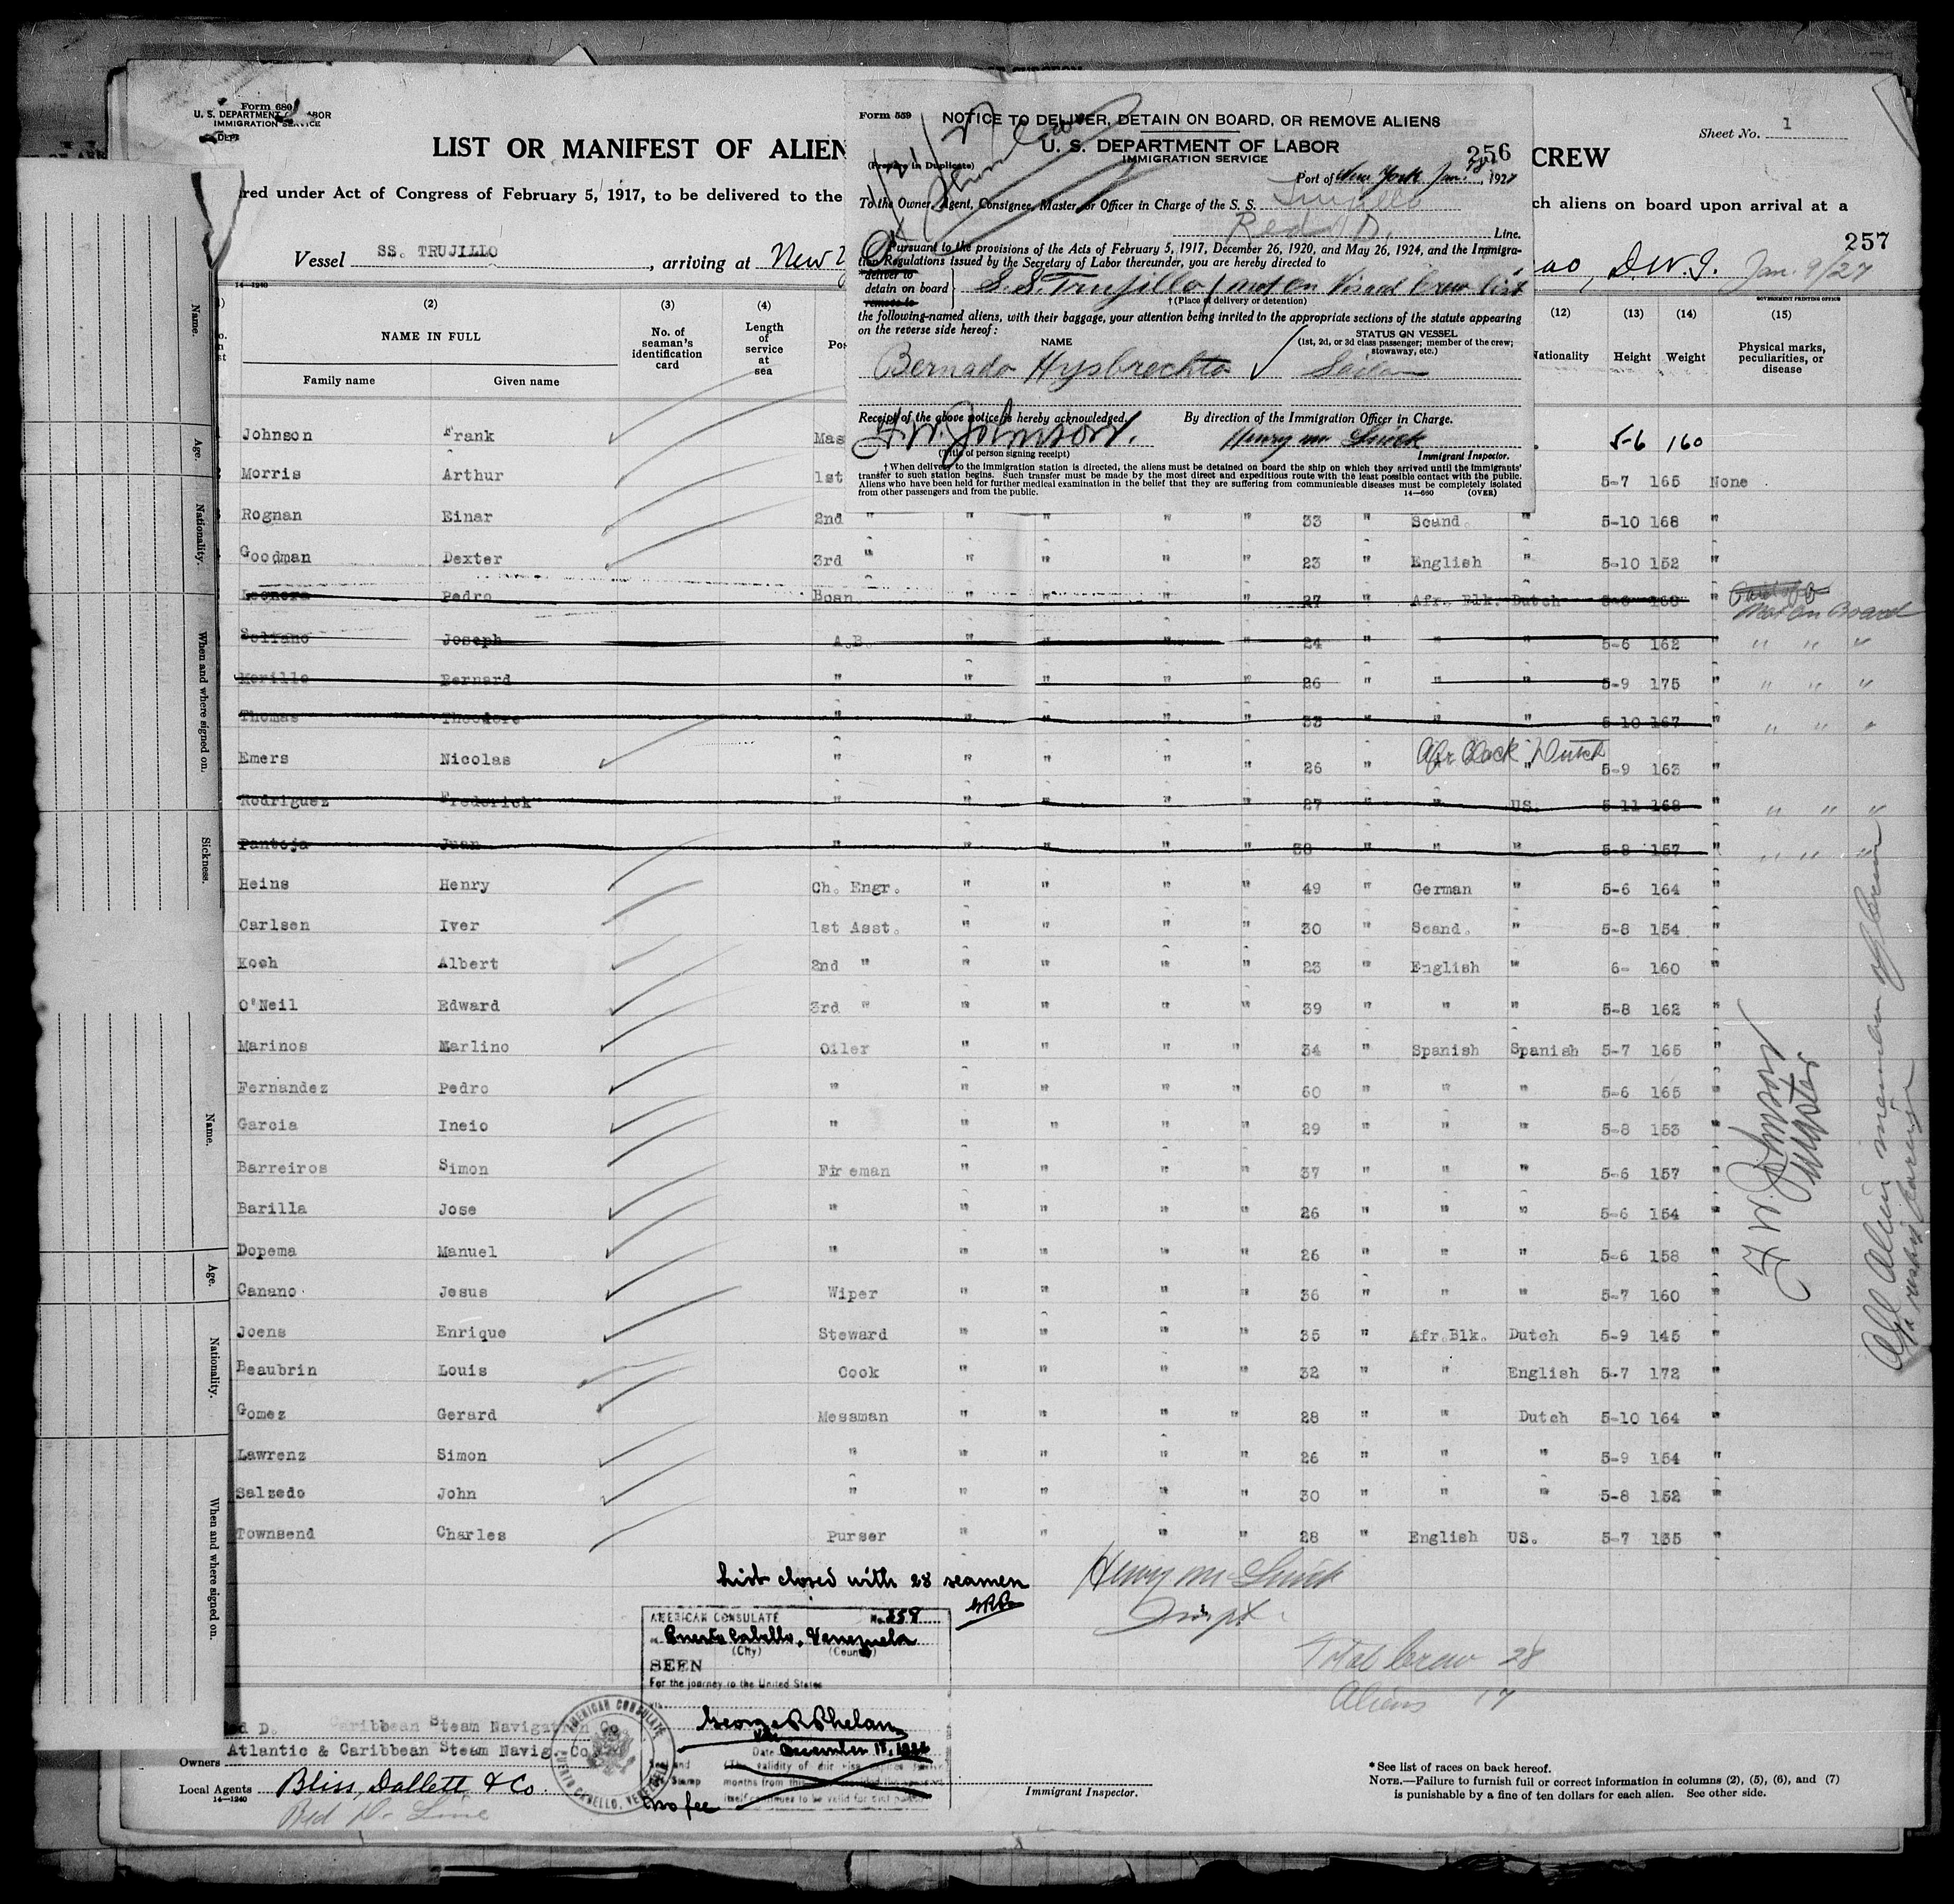 Form 680
U. S. DEPARTMENT LABOR
IMMIGRATION SERVICE
LIST OR MANIFEST OF ALIEN
CREW
Sheet No. 1
red under Act of Congress of February 5, 1917, to be delivered to the
ch aliens on board upon arrival at a
257
Vessel SS. TRUJILLO, arriving at New
ao, D.W.I. Jan. 9/27
Form 559
NOTICE TO DELIVER, DETAIN ON BOARD, OR REMOVE ALIENS
U. S. DEPARTMENT OF LABOR
IMMIGRATION SERVICE
256
(Prepare in Duplicate)
Port of New York Jan. , 1927
To the Owner, Agent, Consignee, Master, or Officer in Charge of the S. S. Trujillo
Red D. Line.
Pursuant to the provisions of the Acts of February 5, 1917, December 26, 1920, and May 26, 1924, and the Immigra-
tion Regulations issued by the Secretary of Labor thereunder, you are hereby directed to
deliver to
detain on board
remove to
S.S. Trujillo / not on Visaed Crew list
† (Place of delivery or detention)
the following-named aliens, with their baggage, your attention being invited to the appropriate sections of the statute appearing
on the reverse side hereof:
NAME
STATUS ON VESSEL
(1st, 2d, or 3d class passenger; member of the crew;
stowaway, etc.)
Bernado Hysbrechto ✓ Sailor
Receipt of the above notice is hereby acknowledged.
By direction of the Immigration Officer in Charge.
F. W. Johnson.
(Title of person signing receipt)
Immigrant Inspector.
† When delivery to the immigration station is directed, the aliens must be detained on board the ship on which they arrived until the immigrants'
transfer to such station begins. Such transfer must be made by the most direct and expeditious route with the least possible contact with the public.
Aliens who have been held for further medical examination in the belief that they are suffering from communicable diseases must be completely isolated
from other passengers and from the public.
14—660 (OVER)
14—1240
GOVERNMENT PRINTING OFFICE
(2) (3) (4) (12) (13) (14) (15)
NAME IN FULL
Family name Given name
No. of seaman's identification card
Length of service at sea
Nationality Height Weight
Physical marks, peculiarities, or disease
Johnson Frank Mas 5-6 160
Morris Arthur 1st 5-7 165 None
Rognan Einar 2nd " " " " " 33 " Scand. " 5-10 168 "
Goodman Dexter 3rd " " " " " 23 " English " 5-10 152 "
Leonora Pedro Bosn " " " " 27 " Afr. Blk. Dutch 5-8 160 " Not on Board
Soliano Joseph A.B. " " " " 24 " " " 5-6 162 " " " "
Morillo Bernard " " " " " 26 " " " 5-9 175 " " " "
Thomas Theodore " " " " " 33 " " " 5-10 167 " " " "
Emers Nicolas " " " " " 26 " Afr Black Dutch 5-9 163 "
Rodriguez Frederick " " " " " 27 " " US. 5-11 168 " " " "
Pantoja Juan " " " " " 38 " " " 5-8 157 " " " "
Heins Henry Ch. Engr. " " " " 49 " German " 5-6 164 "
Carlsen Iver 1st Asst. " " " " 30 " Scand. " 5-8 154 "
Koch Albert 2nd " " " " " 23 " English " 6- 160 "
O'Neil Edward 3rd " " " " " 39 " " " 5-8 162 "
Marinos Marlino Oiler " " " " 34 " Spanish Spanish 5-7 165 "
Fernandez Pedro " " " " " 50 " " " 5-6 165 "
Garcia Ineio " " " " " 29 " " " 5-8 153 "
Barreiros Simon Fireman " " " " 37 " " " 5-6 157 "
Barilla Jose " " " " " 26 " " " 5-6 154 "
Dopema Manuel " " " " " 26 " " " 5-6 158 "
Canano Jesus Wiper " " " " 36 " " " 5-7 160 "
Joens Enrique Steward " " " " 35 " Afr.Blk. Dutch 5-9 145 "
Beaubrin Louis Cook " " " " 32 " " English 5-7 172 "
Gomez Gerard Messman " " " " 28 " " Dutch 5-10 164 "
Lawrenz Simon " " " " " 26 " " " 5-9 154 "
Salzedo John " " " " " 30 " " " 5-8 152 "
Townsend Charles Purser " " " " 28 " English US. 5-7 135 "
F. W. Johnson
Master
All Alien members of Crew
List closed with 28 seamen
GRP
Total Crew 28
Aliens 17
AMERICAN CONSULATE No. 258
Puerto Cabello, Venezuela
(City) (Country)
SEEN
For the journey to the United States
George R Phelan
Date December 18, 1926
months from this
No fee
AMERICAN CONSULATE
PUERTO CABELLO, VENEZUELA
Red D. Caribbean Steam Navigation Co
Owners Atlantic & Caribbean Steam Navig. Co
Local Agents Bliss, Dallett & Co.
14—1240
Red D. Line
Immigrant Inspector.
* See list of races on back hereof.
NOTE.—Failure to furnish full or correct information in columns (2), (5), (6), and (7)
is punishable by a fine of ten dollars for each alien. See other side.
Name.
Age.
Nationality.
When and where signed on.
Sickness.
Name.
Age.
Nationality.
When and where signed on.